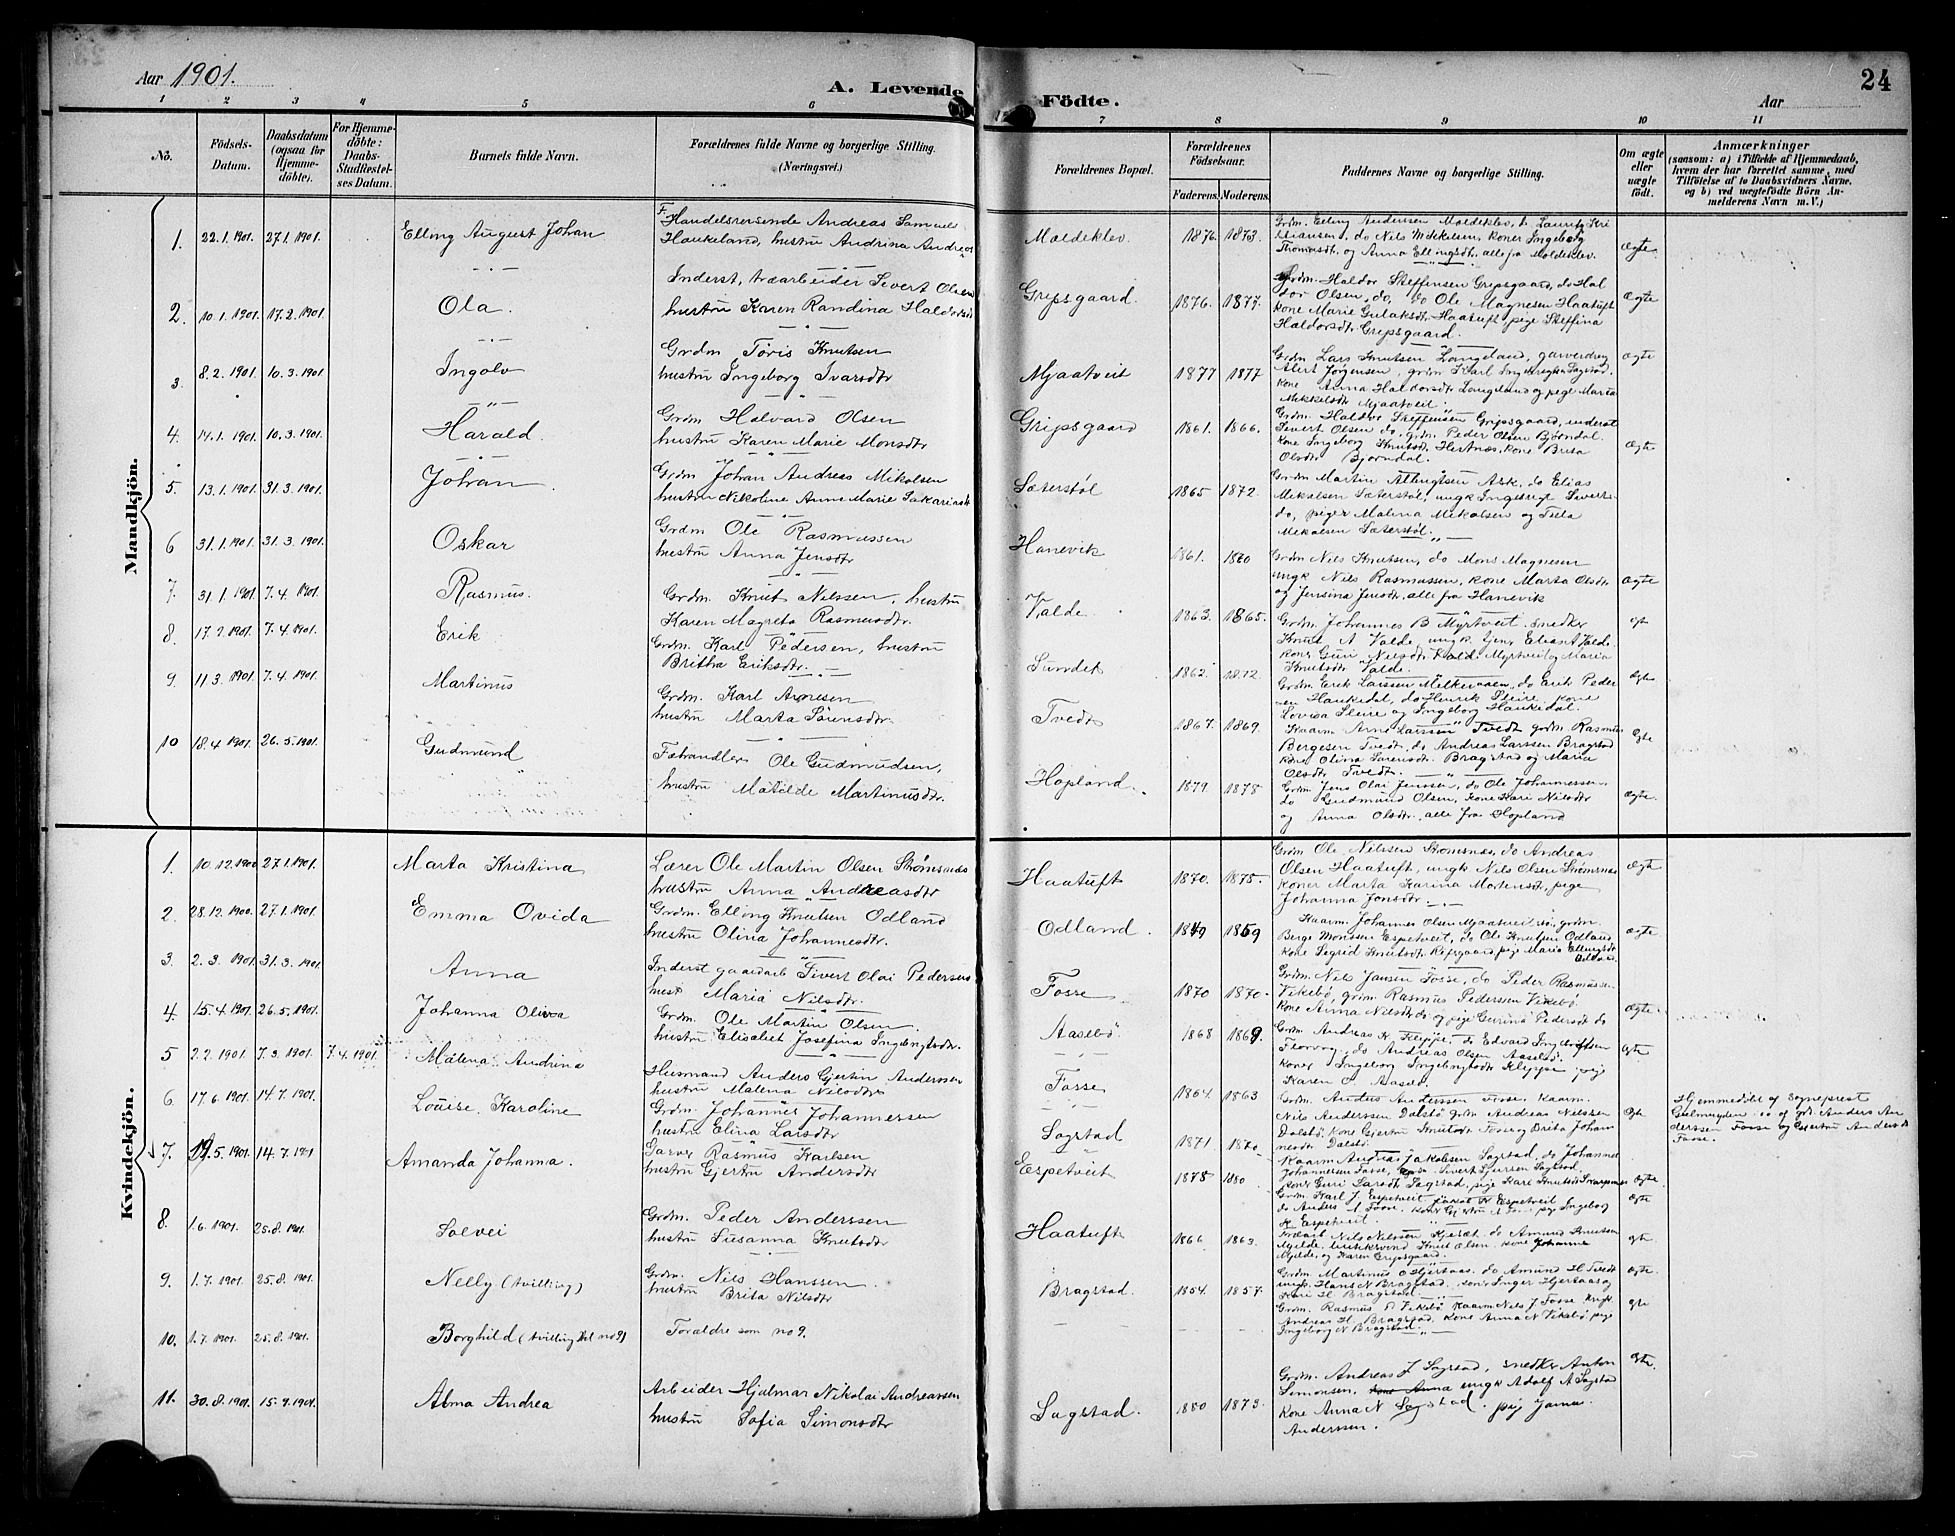 Aar 1901.
A. Levende Födte.
Aar
24
1 2 3 4 5 6 7 8 9 10 11
No.
Födsels-Datum.
Daabsdatum (ogsaa for Hjemme-döbte).
For Hjemme-döbte: Daabs-Stadfæstel-ses Datum.
Barnets fulde Navn.
Forældrenes fulde Navne og borgerlige Stilling.
(Næringsvei.)
Forældrenes Bopæl.
Forældrenes Födselsaar.
Faderens. Moderens.
Faddernes Navne og borgerlige Stilling.
Om ægte eller uægte födt.
Anmærkninger
(sansom: a) i Tilfælde af Hjemmedaab,
hvem der har forrettet samme, med
Tilföielse af to Daabsvidners Navne.
og b) ved uægtefödte Börn An-
melderens Navn m. V.)
Mandkjön.
1. 22.1.1901. 27.1.1901. Elling August Johan
Handelsreisende Andreas Samuels
Haukeland, hustru Andrina Andreas
Moldeklev. 1876. 1873.
Grdm. Elling Andersen Moldeklev,
Thomasdt. og Anna Ellingsdt. alle fra Moldeklev.
Ægte
2. 10.1.1901. 17.2.1901. Ola.
Inderst, træarbeider Sivert Olsen
hustru Karen Randina Haldorsdt
Gripsgaard. 1876. 1877.
Grdm. Haldor Steffensen Gripsgaard, do Hal
dor Olsen, do, do Ole Magnesen Haatuft
kone Marie Gulaksdt. Haatuft, pige Steffina
Haldorsdt. Gripsgaard.
Ægte
3. 8.2.1901. 10.3.1901 Ingolv
Grdm Töris Knutsen
hustru Ingeborg Ivarsdtr
Mjaatveit 1877 1877
Grdm Lars Knutsen Langeland, garverdreng
kone Anna Haldorsdt. Langeland og pige Maria
Mikkelsdt. Mjaatveit.
Ægte
4. 14.1.1901. 10.3.1901 Harald.
Grdm Halvard Olsen
hustru Karen Marie Monsdtr
Gripsgaard 1861. 1866.
Grdm. Haldor Steffensen Gripsgaard, inderst
Sivert Olsen do, grdm. Peder Olsen Bjørndal.
kone Ingeborg Knutsdt. Hertnæs, kone Brita
Olsdtr Bjorndal.
Ægte
5. 13.1.1901. 31.3.1901 Johan
Grdm Johan Andreas Mikalsen
hustru Nikoline Anne Marie Sakariasdt
Sæterstöl 1865 1872.
Grdm Martin Ask, do Elias
Mikalsen Sæterstöl, ungk Ingebrigt Siverts
do, piger Malena Mikalsen og
Mikalsen Sæterstöl.
6 31.1.1901. 31.3.1901. Oskar
Grdm Ole Rasmussen
hustru Anna Jensdtr
Hanevik 1861. 1870
Grdm Nils Knutsen, do Mons Magnesen
ungk Nils Rasmussen, kone Marta Olsdt.
og Jensina Jensdt. alle fra Hanevik
Ægte
7. 31.1.1901. 7.4.1901. Rasmus.
Grdm. Knut Nilssen, hustru
Karen Magreta Rasmusdtr.
Valde. 1863. 1865.
Grdm. Johannes B Myrtveit, snedker
Knut A Valde, ungk.
Knutsdt. Valde.
8. 17.2.1901. 7.4.1901. Erik.
Grdm. Karl Pedersen, hustru
Britha Eriksdtr.
Sundet 1862. 1872.
Grdm. Erik Larsen do Erik Peder
sen Haukedal, do Henrik Sleire, kone
Lovisa Sleire og Ingeborg Haukedal.
Ægte
9. 11.3.1901. 7.4.1901 Martinus
Grdm. Karl Arnesen
hustru Marta Sörensdtr.
Tvedt 1867. 1869.
Kaarm Arne Larssen Tvedt grdm. Rasmus
Bergesen Tvedt, do Andreas Larssen Bragstad
kone Olina Sörensdt. Bragstad og Maria
Olsdt. Tvedt.
10 18.4.1901 26.5.1901. Gudmund
Fæhandler Ole Gudmundsen,
hustru Matilde Martinusdtr.
Hopland. 1879 1878
Grdm. Jens Olai Jenssen, do Ole Johannessen,
do Gudmund Olsen, kone Kari Nilsdtr
og Anna Olsdtr. alle fra Hopland
Ægte.
Kvindekjön.
1. 10.12.1900 27.1.1901. Marta Kristina
Lærer Ole Martin Olsen Strømsnæs
hustru Anna Andreasdtr
Haatuft 1870. 1875.
Grdm Ole Nilssen Strømsnæs, do Andreas
Olsen Haatuft, ungk Nils Olsen Strømsnæs
koner Marta Karina Mortensdt, pige
Johanna Jonsdtr.
Ægte
2. 28.12.1900. 27.1.1901. Emma Ovida
Grdm. Elling Knutsen Odland
hustru Olina Johannesdtr.
Odland. 1849 1859
Kaarm. Johannes Olsen Mjaatveit, grdm.
Berge Monssen Espetveit, do Ole Knutsen Odland
kone Sigrid Knutsdt. pige Marie Ellingsdt.
Odland.
Ægte
3. 2.3.1901. 31.3.1901. Anna
Inderst gaardarb Sivert Olai Pedersen
hust Maria Nilsdtr.
Fosse 1870 1870.
Grdm. Nils Jansen Fosse, do Peder Rasmussen
Vikebö, grdm Rasmus Pederssen Vikebö.
kone Anna Nilsdt. do og pige Gurina Pedersdt do
Ægte
4. 15.4.1901 26.5.1901. Johanna Olivea
Grdm. Ole Martin Olsen.
hustru Elisabet Josefina Ingebrigtsdtr.
Aasebö 1868 1869.
Grdm. Andreas K Kleppe, do Edvard
Florvog, do Andreas Olsen Aasebö,
koner Ingeborg Ingebrigtsdt Kleppe, pige
Karen O. Aasebö.
Ægte
5 2.2.1901. 7.3.1901. 7.4.1901. Malena Andrina
Husmand Anders Gjertin Anderssen
hustru Malena Nilsdtr.
Fosse 1864. 1863
Grdm. Anders Anderssen Fosse, Kaarm.
Nils Anderssen Dalstö grdm. Andreas Nilssen
Dalstö. kone Gjertru Knutsdt. Fosse og Brita Johan
nesdt. Dalstö.
Ægte
Hjemmedöbt af Sogneprest
af grd. Anders An
derssen Fosse og Gjertru Andersdt
Fosse.
6 17.6.1901 14.7.1901. Louise Karoline
Grdm. Johannes Johannessen
hustru Elina Larsdtr
Sagstad 1871. 1870
Kaarm Andreas Jakobsen Sagstad, do Johannes
Johannesen Fosse, Sivert Sjursen Sagstad,
koner Guri Larsdt. Sagstad, pige Kari Knutsdt
Ægte
7. 19.5.1901 14.7.1901 Amanda Johanna.
Garver Rasmus Karlsen
hustru Gjertru Andersdtr
Espetveit 1878 1880
Grdm. Karl J. Espetveit, Jakob K Espetveit,
do Anders A Fosse. kone Gjertru A Fosse pige Ingeborg
K Espetveit.
Ægte
8. 1.6.1901. 25.8.1901. Solvei
Grdm. Peder Anderssen
hustru Susanna Knutsdtr
Haatuft 1866 1863.
Nils Nilssen do Amund Knutsen
Mjelde, Knut Olsen, kone Johanne
Mjelde, og Karen Gripsgaard.
9. 1.7.1901. 25.8.1901. Nelly (tvilling)
Grdm. Nils Hanssen.
hustru Brita Nilsdtr
Bragstad. 1854. 1857.
Grdm. Martinus O Hjertaas. do Amund H Tvedt
ungk. Hans N Bragstad, kone Inger Hjertaas og
Kari H. Bragstad.
Ægte.
10. 1.7.1901. 25.8.1901. Borghild (tvilling til no 9)
Forældre som no 9.
Grdm. Rasmus P Vikebö Kaarm Nils J Fosse ungk
Andreas H. Bragstad, kone Anna N Vikebö, pige
Ingeborg N Bragstad.
11. 30.8.1901. 15.9.1901. Alma Andrea
Arbeider Hjalmar Nikolai Andreassen
hustru Sofia Simonsdtr
Sagstad. 1880 1873.
Grdm. Andreas J Sagstad, snedker Anton
Simonsen, ungk Adolf A Sagstad
kone Anna N Sagstad. pige
Anderssen.
Ægte.